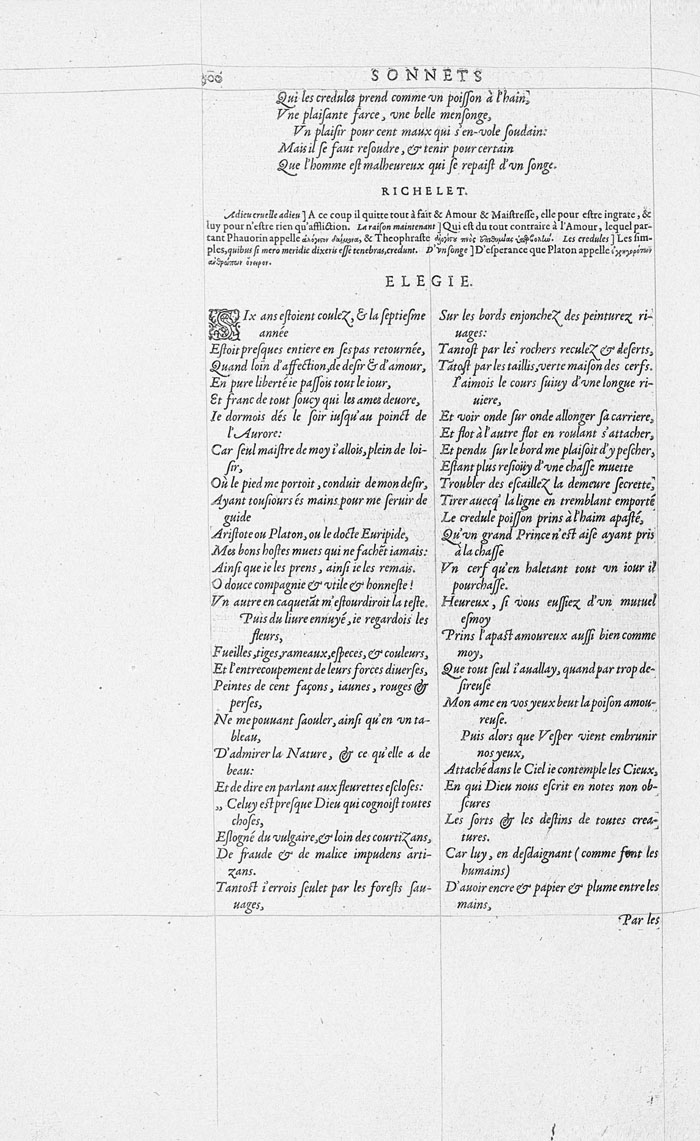 300 SONNETS
Qui les credules prend comme vn poiſſon à l'hain,
Vne plaiſante farce, vne belle menſonge,
Vn plaiſir pour cent maux qui s'en-vole ſoudain:
Mais il ſe faut reſoudre, & tenir pour certain
Que l'homme eſt malheureux qui ſe repaiſt d'vn ſonge.
RICHELET.
Adieu cruelle adieu ] A ce coup il quitte tout à fait & Amour & Maiſtreſſe, elle pour eſtre ingrate, &
luy pour n'eſtre rien qu'affliction. La raiſon maintenant ] Qui eſt du tout contraire à l'Amour, lequel par-
tant Phauorin appelle & Theophraste Les credules ] Les ſim-
ples, quibus ſi mero meridie dixeris eſſe tenebras, credunt. D'vn ſonge ] D'eſperance que Platon appelle
ELEGIE.
SIx ans eſtoient coulez, & la ſeptieſme
année
Eſtoit preſques entiere en ſes pas retournée,
Quand loin d'affection, de deſir & d'amour,
En pure liberté ie paſſois tout le iour,
Et franc de tout ſoucy qui les ames deuore,
Ie dormois dés le ſoir iuſqu'au poinct de
l'Aurore:
Car ſeul maiſtre de moy i'allois, plein de loi-
ſir,
Où le pied me portoit, conduit de mon deſir,
Ayant touſiours és mains pour me ſeruir de
guide
Ariſtote ou Platon, ou le docte Euripide,
Mes bons hoſtes muets qui ne fachẽt iamais:
Ainſi que ie les prens, ainſi ie les remais.
O douce compagnie & vtile & honneſte!
Vn autre en caquetãt m'eſtourdiroit la teſte.
Puis du liure ennuyé, ie regardois les
fleurs,
Fueilles, tiges, rameaux, eſpeces, & couleurs,
Et l'entrecoupement de leurs formes diuerſes,
Peintes de cent façons, iaunes, rouges &
perſes,
Ne me pouuant ſaouler, ainſi qu'en vn ta-
bleau,
D'admirer la Nature, & ce qu'elle a de
beau:
Et de dire en parlant aux fleurettes eſcloſes:
„ Celuy eſt preſque Dieu qui cognoiſt toutes
choſes,
Eſlogné du vulgaire, & loin des courtizans,
De fraude & de malice impudens arti-
zans.
Tantoſt i'errois ſeulet par les foreſts ſau-
uages,
Sur les bords enjonchez des peinturez ri-
uages:
Tantoſt par les rochers reculez & deſerts,
Tãtoſt par les taillis, verte maiſon des cerfs.
I'aimois le cours ſuiuy d'vne longue ri-
uiere,
Et voir onde ſur onde allonger ſa carriere,
Et flot à l'autre flot en roulant s'attacher,
Et pendu ſur le bord me plaiſoit d'y peſcher,
Eſtant plus reſioüy d'vne chaſſe muette
Troubler des eſcaillez la demeure ſecrette,
Tirer auecq' la ligne en tremblant emporté
Le credule poiſſon prins à l'haim apaſté,
Qu'vn grand Prince n'eſt aiſe ayant pris
à la chaſſe
Vn cerf qu'en haletant tout vn iour il
pourchaſſe.
Heureux, ſi vous euſſiez d'vn mutuel
eſmoy
Prins l'apaſt amoureux auſſi bien comme
moy,
Que tout ſeul i'auallay, quand par trop de-
ſireuſe
Mon ame en vos yeux beut la poiſon amou-
reuſe.
Puis alors que Veſper vient embrunir
nos yeux,
Attaché dans le Ciel ie contemple les Cieux,
En qui Dieu nous eſcrit en notes non ob-
ſcures
Les ſorts & les deſtins de toutes crea-
tures.
Car luy, en deſdaignant (comme font les
humains)
D'auoir encre & papier & plume entre les
mains,
Par les